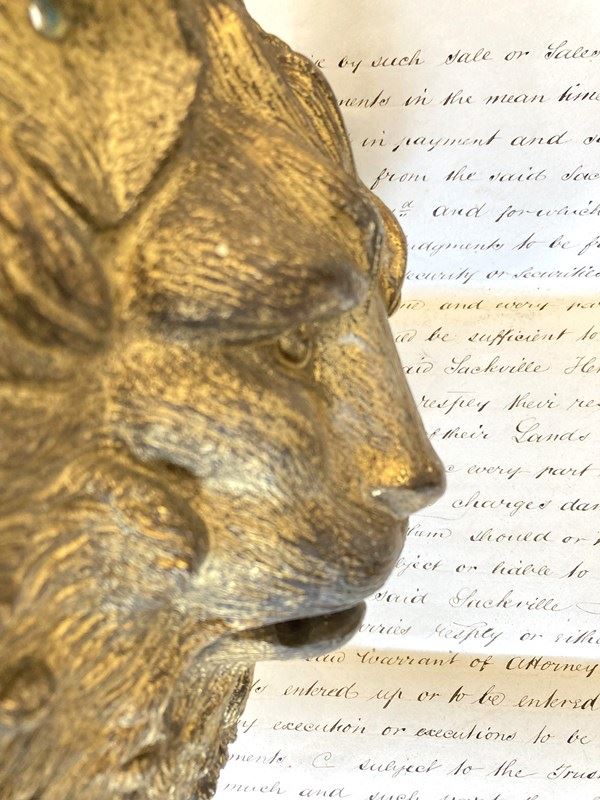 by such sale or Sales
ments in the mean time
in payment and
from the said Sac
and for which
udgments to be f
ecurity or securities
and every par
be sufficient to
aid Sackville Hen
resply their res
their Lands
every part
charges dam
should or
bject or liable to
said Sackville
resply or eithe
Warrant of Attorney
entered up or to be entered
execution or executions to be
ments. C subject to the Trus
much and such